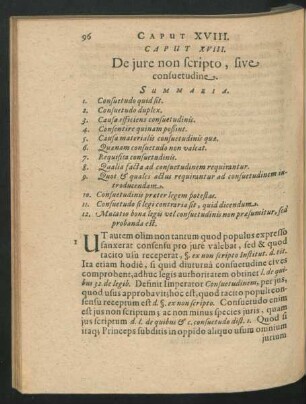 96 CAPUT XVIII.
CAPUT XVIII.
De jure non scripto, sive
consuetudine.
SUMMARIA.
1. Consuetudo quid sit.
2. Consuetudo duplex.
3. Causa efficiens consuetudinis.
4. Consentire quinam possint.
5. Causa materialis consuetudinis quæ.
6. Quænam consuetudo non valeat.
7. Requisita consuetudinis.
8. Qualia facta ad consuetudinem requirantur.
9. Quot & quales actus requirantur ad consuetudinem in-
troducendam.
10. Consuetudinis præter legem potestas.
11. Consuetudo si legi contraria sit, quid dicendum.
12. Mutatio bona legis vel consuetudinis non præsumitur, sed
probanda est.
1 UT autem olim non tantum quod populus expresso
sanxerat consensu pro jure valebat, sed & quod
tacito usu receperat, §. ex non scripto Institut. d. tit.
Ita etiam hodiè, si quid diuturnâ consuetudine cives
comprobent, adhuc legis authoritatem obtinet l. de qui-
bus 32. de legib. Definit Imperator Consuetudinem, per jus,
quod usus approbavit, hoc est, quod tacito populi con-
sensu receptum est d. §. ex non scripto. Consuetudo enim
est jus non scriptum; ac non minus species juris, quam
jus scriptum d. l. de quibus & c. consuetudo dist. 1. Quod si
itaq; Princeps subditis in oppido aliquo usum omnium
jurium